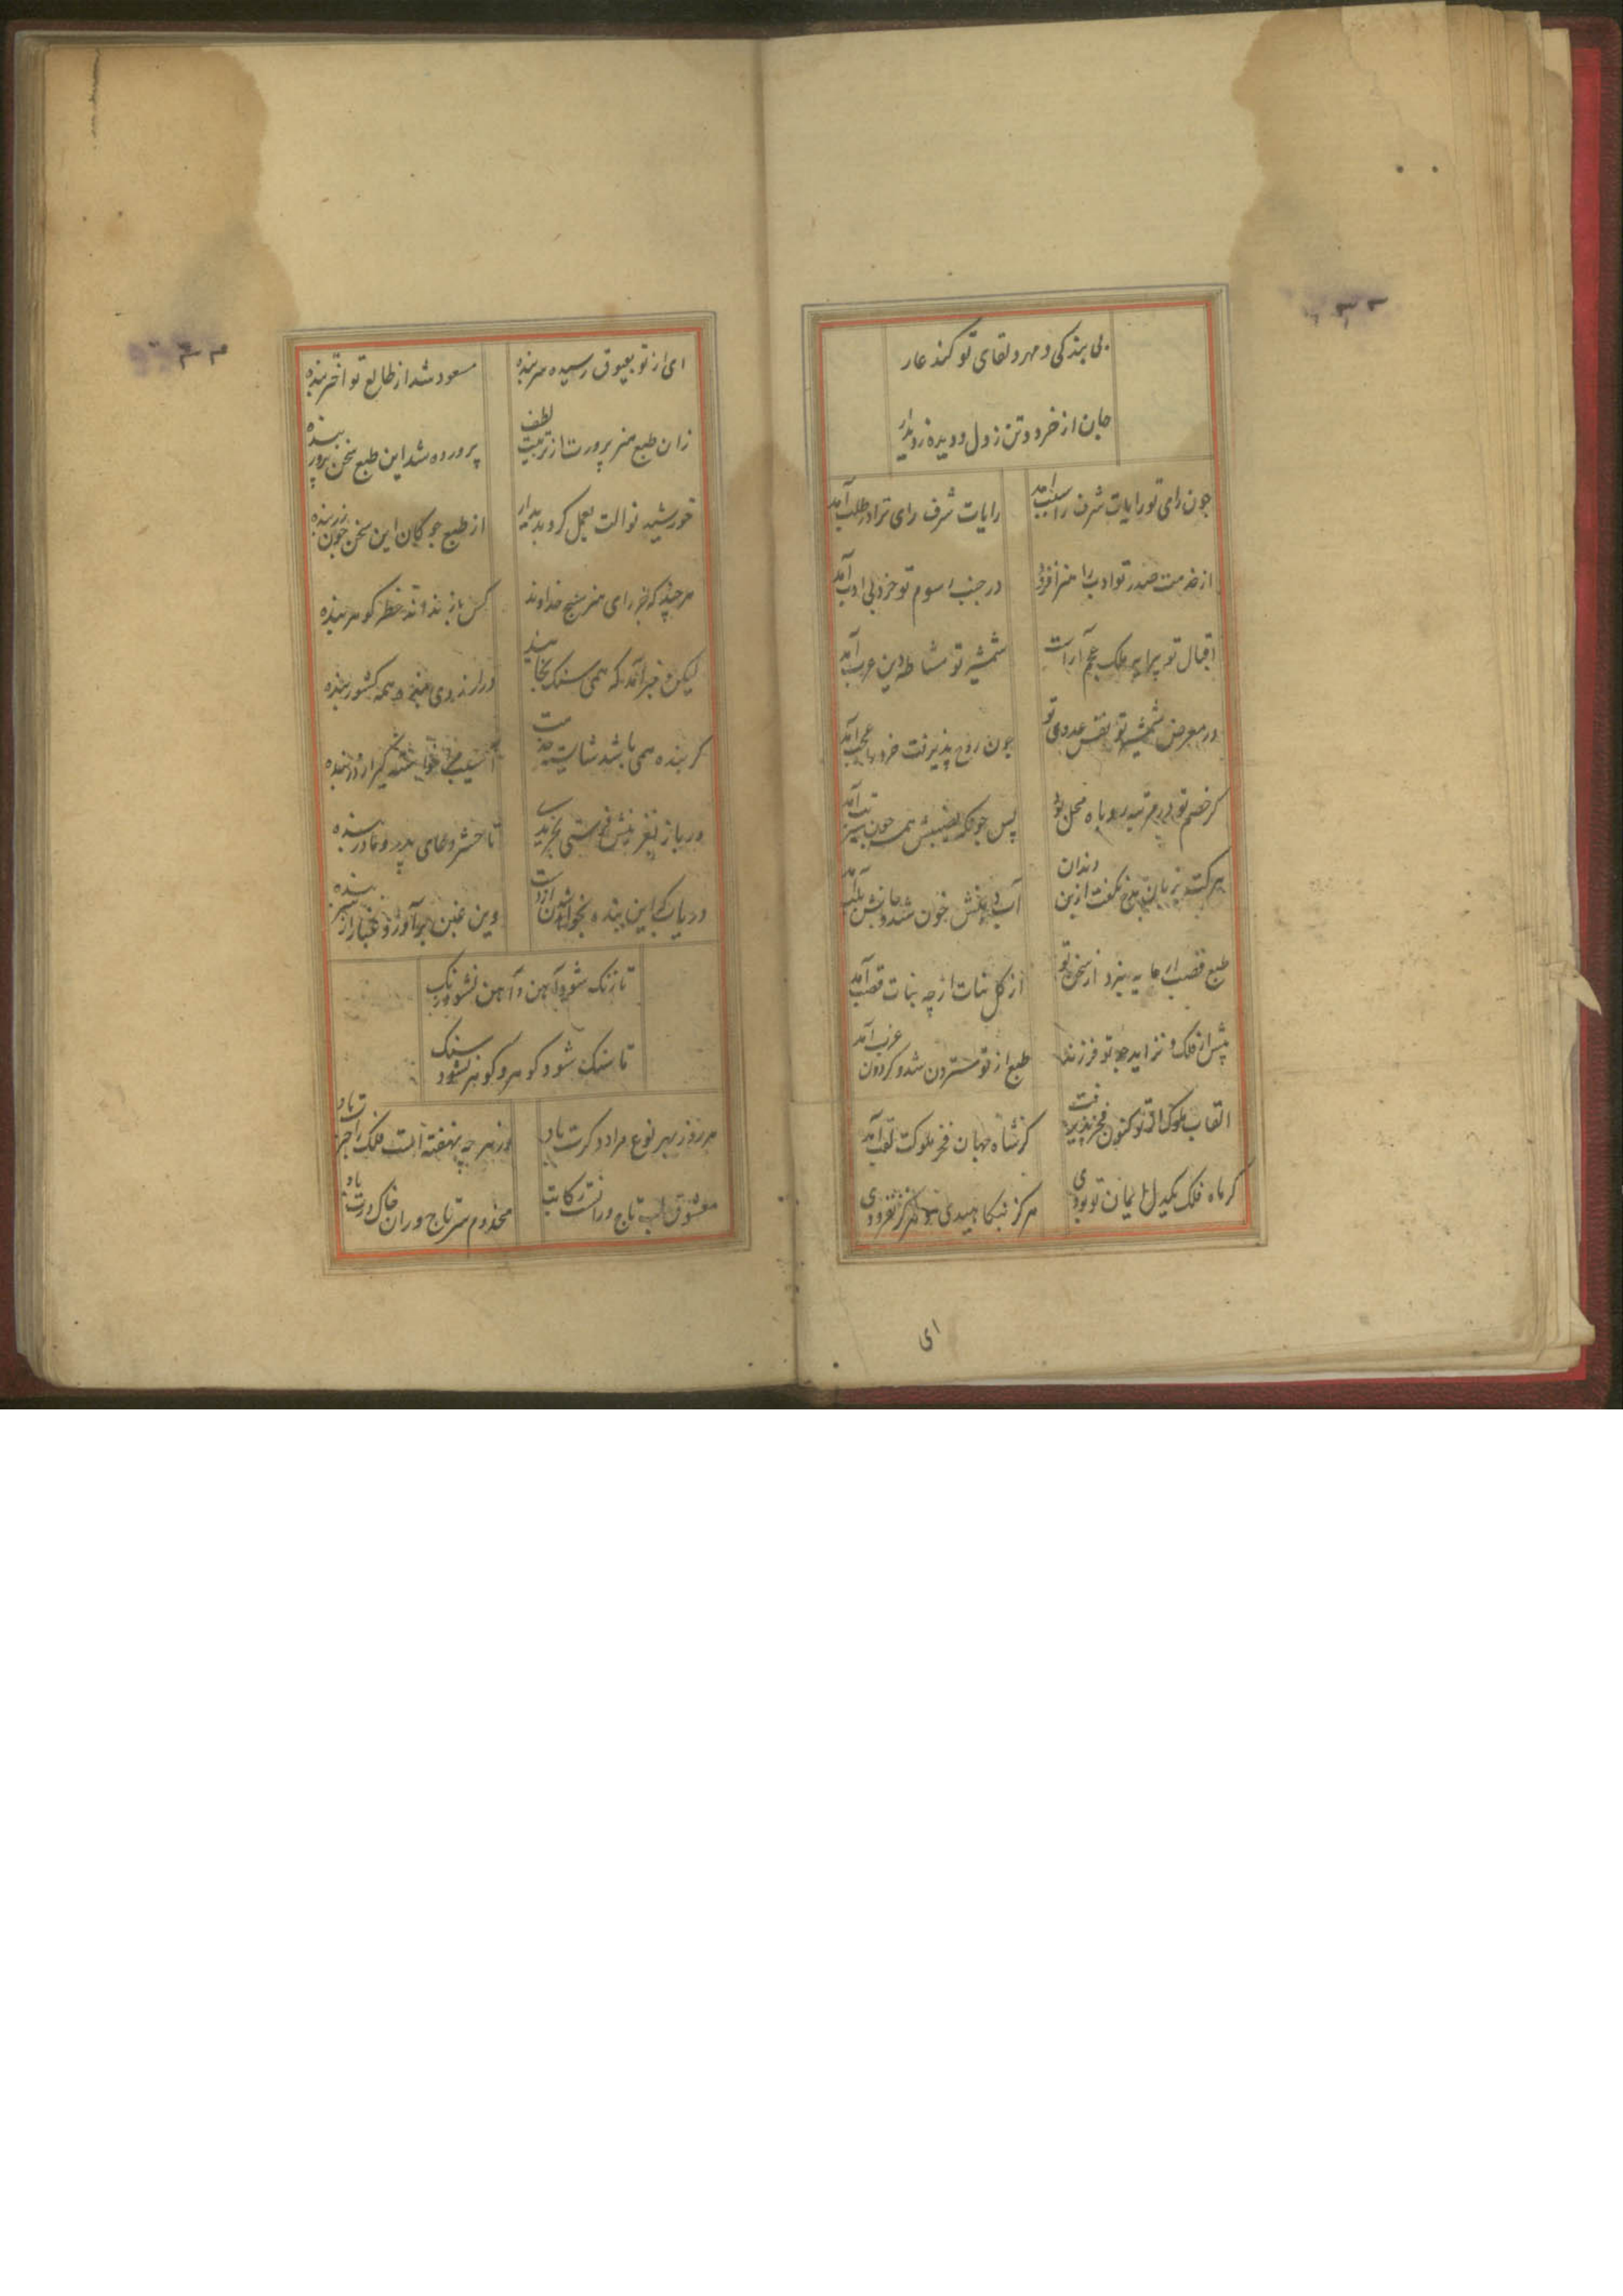 بی بندکی و مهر و لقای تو کند عار
جان از خرد و تن ز دل و دیده ز دیدار
چون رای تو رایات شرف را سبب آمد
رایات شرف رای ترا در طلب آمد
از خدمت صدر تو ادب را هنر افزود
در جنب رسوم تو خرد بی ادب آمد
اقبال تو پیرایه ملک عجم آراست
شمشیر تو مشاطه دین عرب آمد
در معرض شمشیر تو نفس عدوی تو
چون روح پذیرفت خرد را عجب آمد
کر خصم تو در مرتبه روباه محل بود
پس چونکه نصیبش همه چون شیر تب آمد
هر کت بزبان بد گفت ازین دندان
آب دهنش خون شد و جانش بلب آمد
طبع قصب ار مایه نبرد از سخن تو
از کل نبات از چه نبات قصب آمد
پیش از فلک و نزاید چو تو فرزند
طبع از تو سترون شد و کردون عزب آمد
القاب ملوک از تو کنون فخر پذیرفت
کز شاه جهان فخر ملوکت لقب آمد
کر ماه فلک یکدل و ایمان تو بودی
هرکز نبکاهیدی و هرکز نفزودی
ای
ای از تو بعیوق رسیده سر بنده
مسعود شد از طالع تو اختر بنده
زان طبع هنر پرورت از تربیت لطف
پرورده شد این طبع سخن پرور بنده
خورشید نوالت بعمل کرد پدیدار
از طبع چو کان این سخن چون زر بنده
هر چند که جز رای هنر سنج خداوند
کس باز نداند خطر کوهر بنده
لیکن خبر آمد که همی سنک بخایند
در آرزوی همه کشور بنده
کر بنده همی باشد شایسته خدمت
آسیب
ور باز بغزنینش فرستی بخریدی
تا حشر دعای پدر و مادر بنده
دریاب که این بنده بخواهد شدن از دست
وین غبن برآورد غبار از سر بنده
تا زنک شود آهن و آهن نشود زنک
تا سنک شود کوهر و کوهر نشود سنک
هر روز بهر نوع مراد دکرت باد
وز هر چه نهفته است فلک را خبرت باد
معشوق لب تاج وران رکابت
مخدوم سر تاج وران خاک درت باد